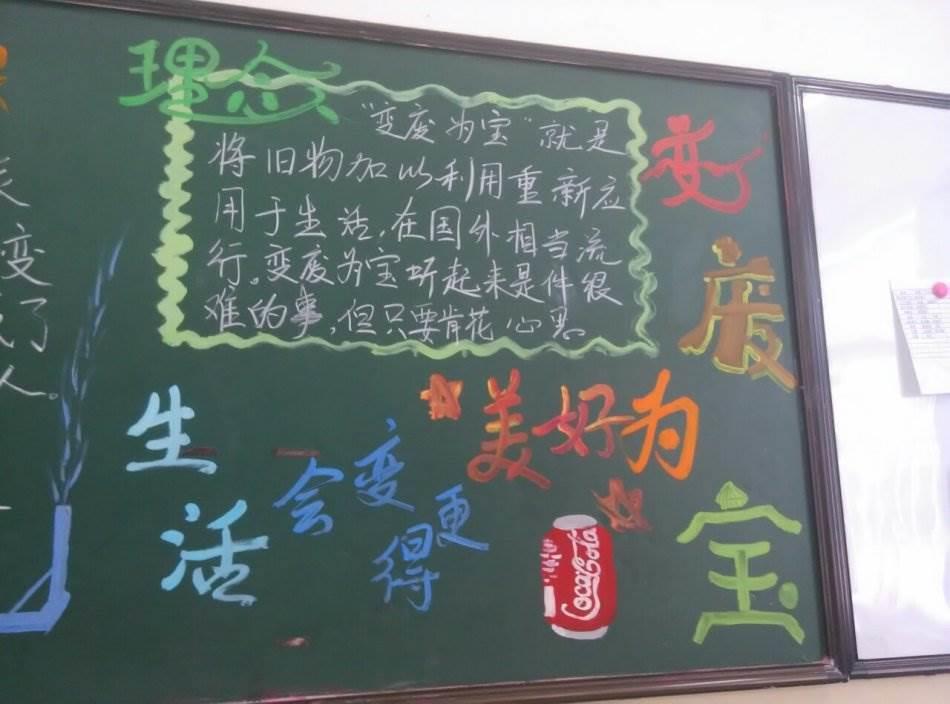 理念
"变废为宝"就是
将旧物加以利用重新应
用于生活,在国外相当流
行。变废为宝听起来是件很
难的事,但只要肯花心思。
变
废
为
宝
生
活
会变
得更
美好
CocaCola
变
了
人。